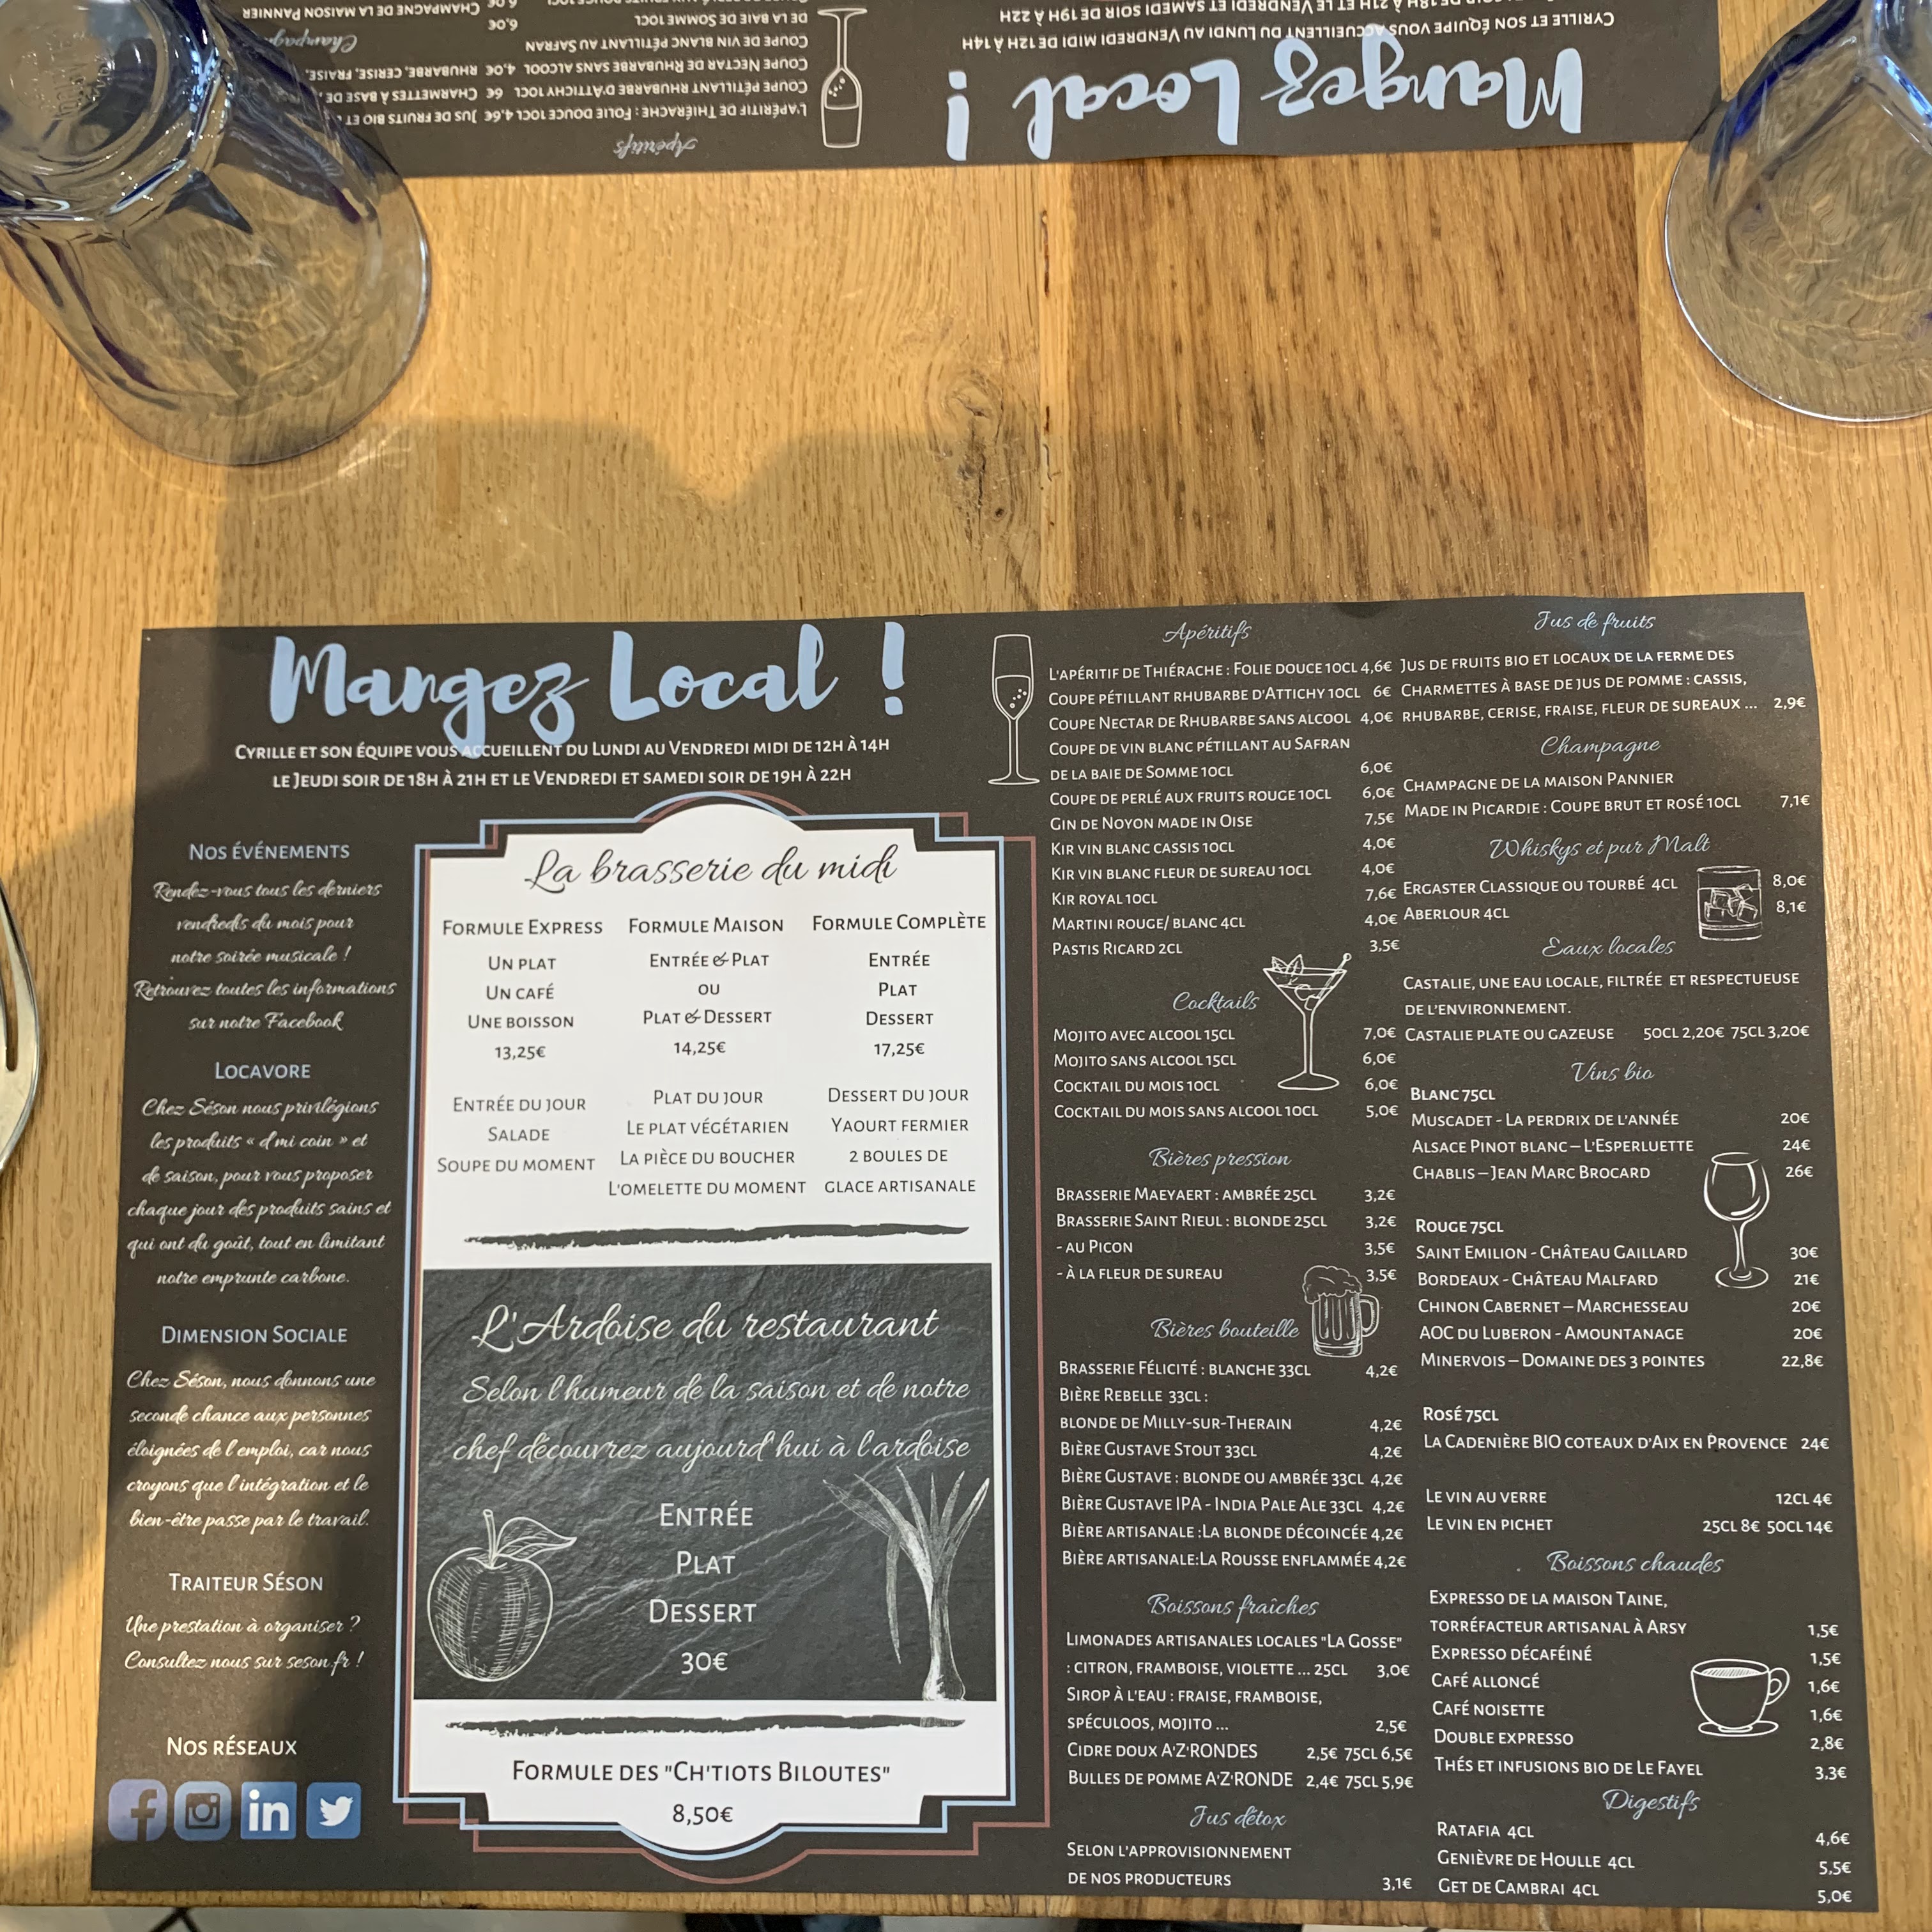 Mangez Local !
Cyrille et son équipe vous accueillent du Lundi au Vendredi midi de 12h à 14h
le Jeudi soir de 18h à 21h et le Vendredi et samedi soir de 19h à 22h
Nos événements
Rendez-vous tous les derniers
vendredis du mois pour
notre soirée musicale !
Retrouvez toutes les informations
sur notre Facebook
Locavore
Chez Séson nous privilégions
les produits « d'mi coin » et
de saison, pour vous proposer
chaque jour des produits sains et
qui ont du goût, tout en limitant
notre emprunte carbone.
Dimension Sociale
Chez Séson, nous donnons une
seconde chance aux personnes
éloignées de l'emploi, car nous
croyons que l'intégration et le
bien-être passe par le travail.
Traiteur Séson
Une prestation à organiser ?
Consultez nous sur seson.fr !
Nos réseaux
La brasserie du midi
Formule Express
Un plat
Un café
Une boisson
13,25€
Formule Maison
Entrée & Plat
ou
Plat & Dessert
14,25€
Formule Complète
Entrée
Plat
Dessert
17,25€
Entrée du jour
Salade
Soupe du moment
Plat du jour
Le plat végétarien
La pièce du boucher
L'omelette du moment
Dessert du jour
Yaourt fermier
2 boules de
glace artisanale
L'Ardoise du restaurant
Selon l'humeur de la saison et de notre
chef découvrez aujourd'hui à l'ardoise
Entrée
Plat
Dessert
30€
Formule des "Ch'tiots Biloutes"
8,50€
Apéritifs
L'apéritif de Thiérache : Folie douce 10cl 4,6€
Coupe pétillant rhubarbe d'Attichy 10cl 6€
Coupe Nectar de Rhubarbe sans alcool 4,0€
Coupe de vin blanc pétillant au Safran
de la baie de Somme 10cl 6,0€
Coupe de perlé aux fruits rouge 10cl 6,0€
Gin de Noyon made in Oise 7,5€
Kir vin blanc cassis 10cl 4,0€
Kir vin blanc fleur de sureau 10cl 4,0€
Kir royal 10cl 7,6€
Martini rouge/ blanc 4cl 4,0€
Pastis Ricard 2cl 3,5€
Cocktails
Mojito avec alcool 15cl 7,0€
Mojito sans alcool 15cl 6,0€
Cocktail du mois 10cl 6,0€
Cocktail du mois sans alcool 10cl 5,0€
Bières pression
Brasserie Maeyaert : ambrée 25cl 3,2€
Brasserie Saint Rieul : blonde 25cl 3,2€
- au Picon 3,5€
- à la fleur de sureau 3,5€
Bières bouteille
Brasserie Félicité : blanche 33cl 4,2€
Bière Rebelle 33cl :
blonde de Milly-sur-Therain 4,2€
Bière Gustave Stout 33cl 4,2€
Bière Gustave : blonde ou ambrée 33cl 4,2€
Bière Gustave IPA - India Pale Ale 33cl 4,2€
Bière artisanale :La blonde décoincée 4,2€
Bière artisanale:La Rousse enflammée 4,2€
Boissons fraîches
Limonades artisanales locales "La Gosse"
: citron, framboise, violette ... 25cl 3,0€
Sirop à l'eau : fraise, framboise,
spéculoos, mojito ... 2,5€
Cidre doux A'Z'RONDES 2,5€ 75cl 6,5€
Bulles de pomme A'Z'RONDE 2,4€ 75cl 5,9€
Jus détox
Selon l'approvisionnement
de nos producteurs 3,1€
Jus de fruits
Jus de fruits bio et locaux de la ferme des
Charmettes à base de jus de pomme : cassis,
rhubarbe, cerise, fraise, fleur de sureaux ... 2,9€
Champagne
Champagne de la maison Pannier
Made in Picardie : Coupe brut et rosé 10cl 7,1€
Whiskys et pur Malt
Ergaster Classique ou tourbé 4cl 8,0€
Aberlour 4cl 8,1€
Eaux locales
Castalie, une eau locale, filtrée et respectueuse
de l'environnement.
Castalie plate ou gazeuse 50cl 2,20€ 75cl 3,20€
Vins bio
Blanc 75cl
Muscadet - La perdrix de l'année 20€
Alsace Pinot blanc – L'Esperluette 24€
Chablis – Jean Marc Brocard 26€
Rouge 75cl
Saint Emilion - Château Gaillard 30€
Bordeaux - Château Malfard 21€
Chinon Cabernet – Marchesseau 20€
AOC du Luberon - Amountanage 20€
Minervois – Domaine des 3 pointes 22,8€
Rosé 75cl
La Cadenière BIO coteaux d'Aix en Provence 24€
Le vin au verre 12cl 4€
Le vin en pichet 25cl 8€ 50cl 14€
Boissons chaudes
Expresso de la maison Taine,
torréfacteur artisanal à Arsy 1,5€
Expresso décaféiné 1,5€
Café allongé 1,6€
Café noisette 1,6€
Double expresso 2,8€
Thés et infusions bio de Le Fayel 3,3€
Digestifs
Ratafia 4cl 4,6€
Genièvre de Houlle 4cl 5,5€
Get de Cambrai 4cl 5,0€
Mangez Local !
Cyrille et son équipe vous accueillent du Lundi au Vendredi midi de 12h à 14h
de 18h à 21h et le Vendredi et samedi soir de 19h à 22h
Apéritifs
L'apéritif de Thiérache : Folie douce 10cl 4,6€ Jus de fruits bio et
Coupe pétillant rhubarbe d'Attichy 10cl 6€ Charmettes à base de
Coupe Nectar de Rhubarbe sans alcool 4,0€ rhubarbe, cerise, fraise,
Coupe de vin blanc pétillant au Safran
de la baie de Somme 10cl 6,0€
Champagne
Champagne de la maison Pannier